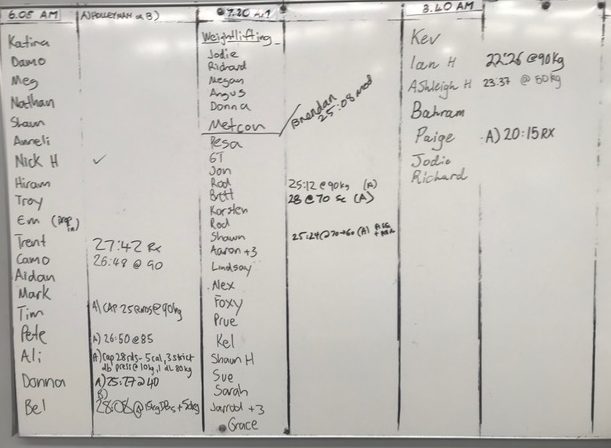 6.05 AM
Katina
Damo
Meg
Nathan
Shawn
Anneli
Nick H ✓
Hiram
Troy
Em
Trent 27:42 Rx
Camo 26:48 @ 90
Aidan
Mark
Tim A) CAP 25 @90kg
Pete A) 26:50 @ 85
Ali A) Cap 28 - 5 cal, 3 strict
db press @ 10kg, 1 dL 80kg
Donna A) 25:27 @ 40
B)
Bel 28:08 @
Weightlifting
Jodie
Richard
Megan
Angus
Donna
Metcon
Brendan
25:08 mod
Resa
GT
Jon
Rod 25:12 @ 90kg (A)
Brett 28 @ 70 sc (A)
Korsten
Rod
Shawn 25:24 @ 70→60 (A)
Aaron +3
Lindsay
Nex
Foxy
Prue
Kel
Shaun H
Sue
Sarah
Jarrod +3
Grace
3.40 AM
Kev
Ian H 22:26 @ 90kg
Ashleigh H 23:37 @ 80kg
Bahram
Paige A) 20:15 RX
Jodie
Richard